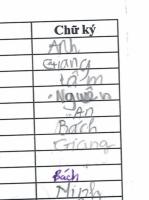 Chữ ký
Anh
Giang
tâm
Nguên
An
Bách
Giang
Bách
Minh